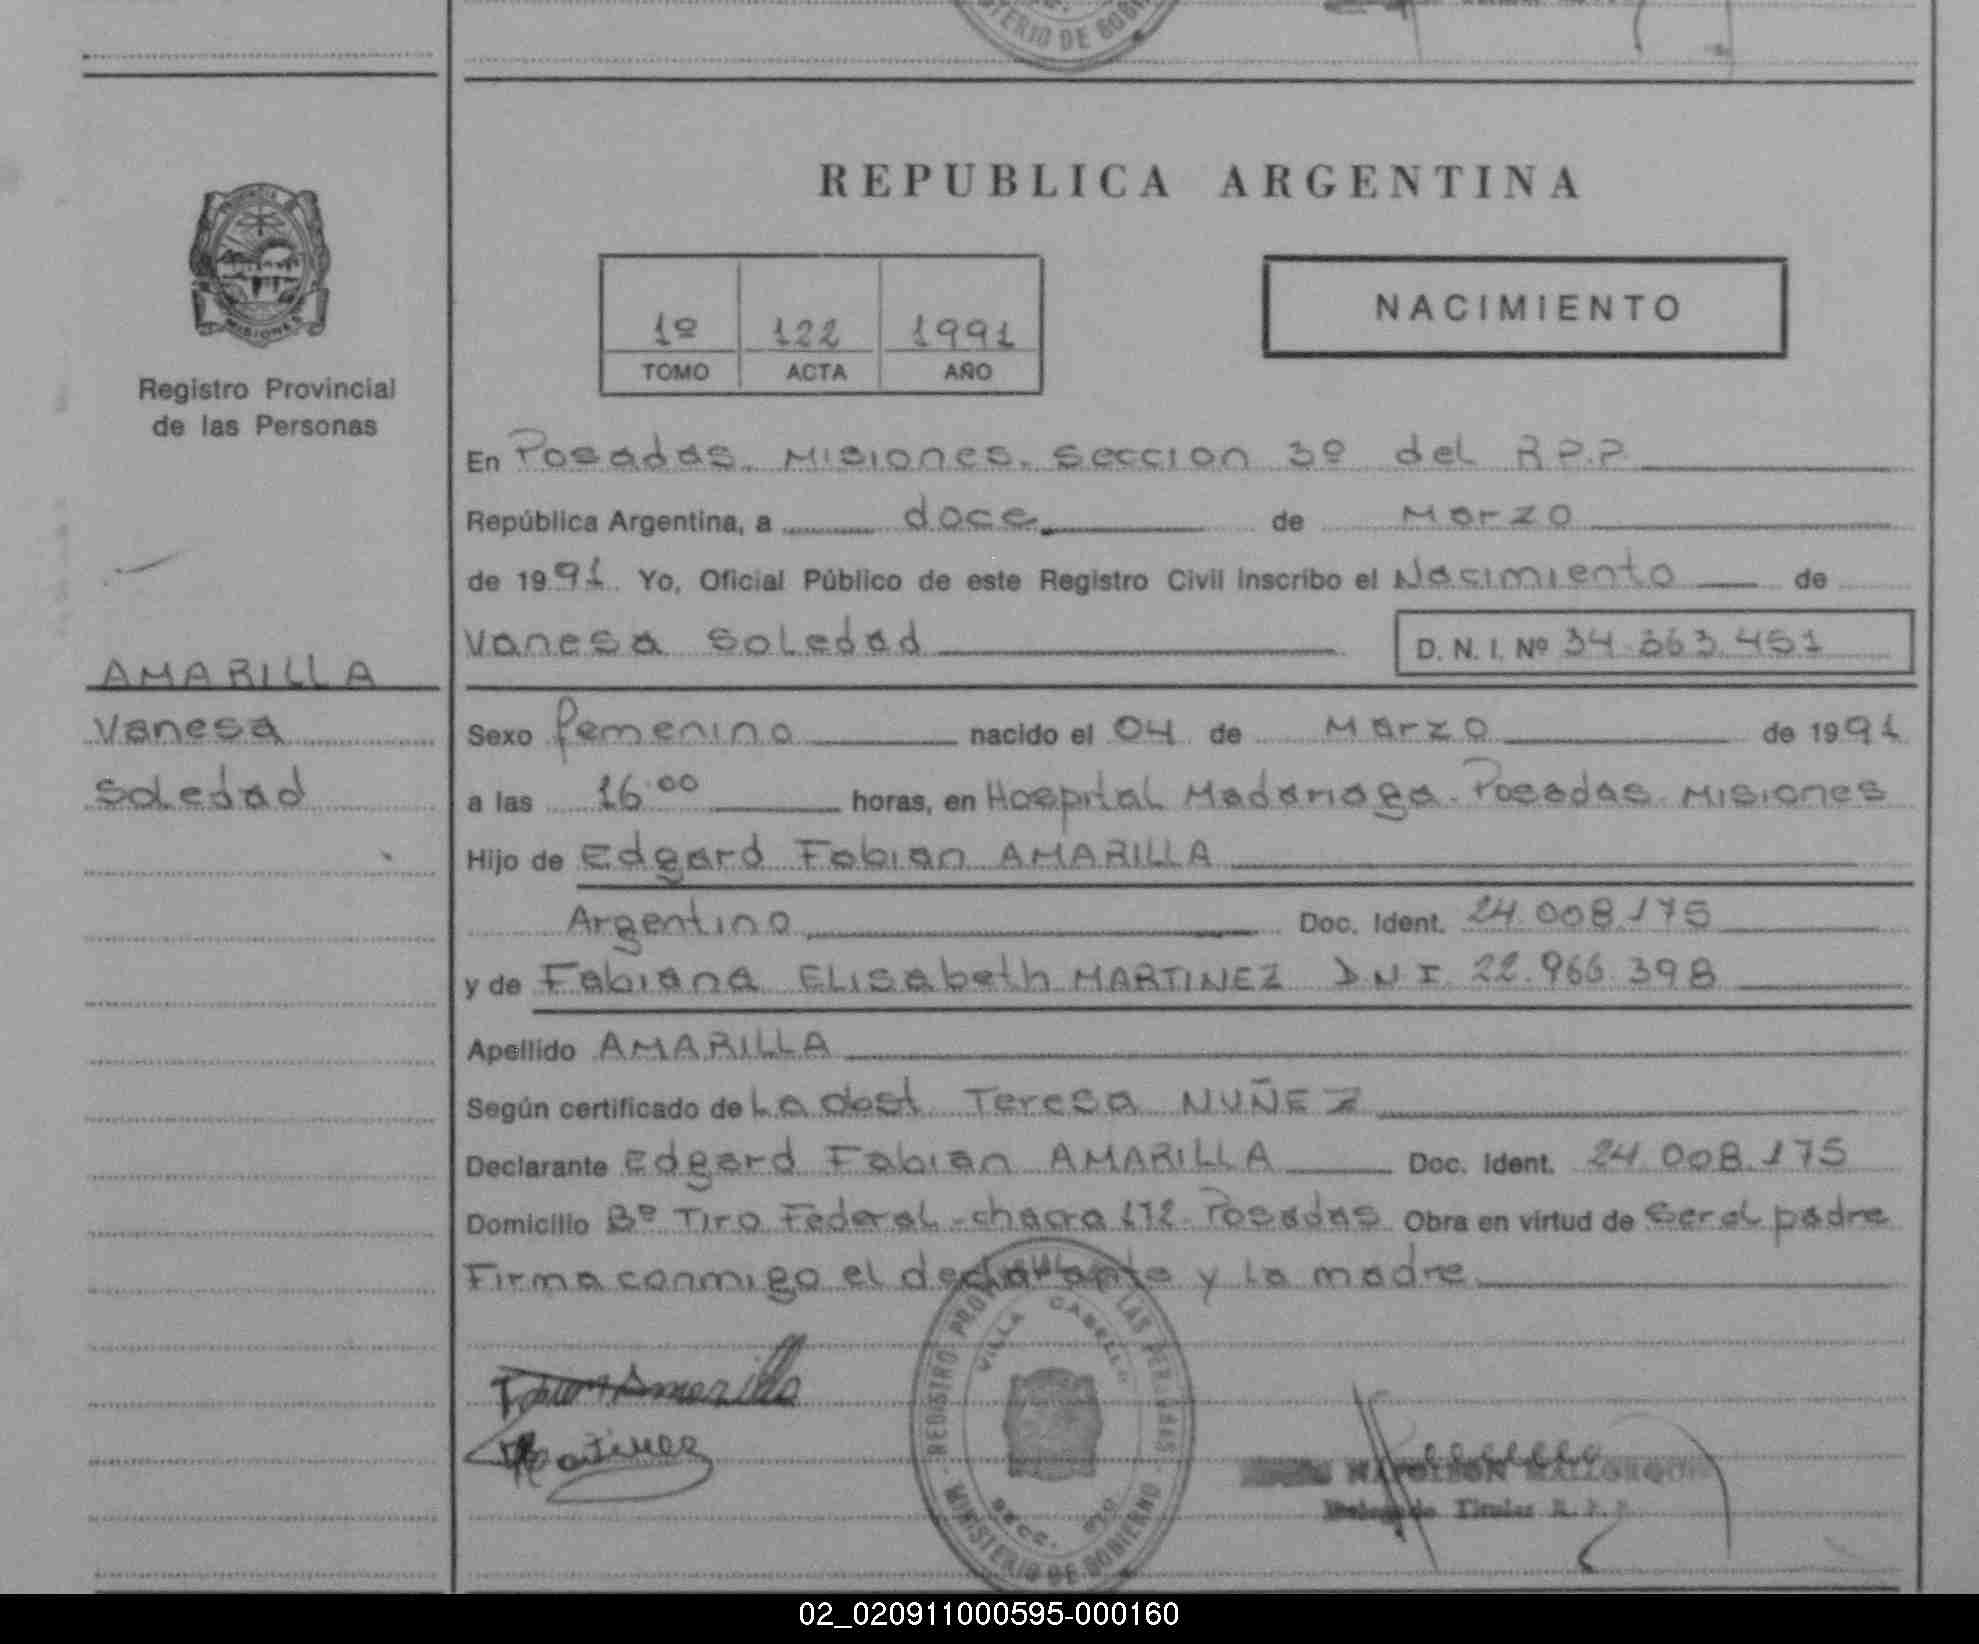 TERIO DE GOBIE
REPUBLICA ARGENTINA
MISIONES
Registro Provincial
de las Personas
1º 122 1991
TOMO ACTA AÑO
NACIMIENTO
En Posadas. Misiones. Seccion 3º del R.P.P.
República Argentina, a doce de Marzo
de 1991. Yo, Oficial Público de este Registro Civil inscribo el Nacimiento de
Vanesa Soledad D. N. I. Nº 34.363.451
AMARILLA
Vanesa
Soledad
Sexo femenino nacido el 04 de Marzo de 1991
a las 16.00 horas, en Hospital Madariaga. Posadas. Misiones
Hijo de Edgard Fabian AMARILLA
Argentino Doc. Ident. 24.008.175
y de Fabiana ELisabeth MARTINEZ D.N.I. 22.966.398
Apellido AMARILLA
Según certificado de La obst. Teresa NUÑEZ
Declarante Edgard Fabian AMARILLA Doc. Ident. 24.008.175
Domicilio Bº Tiro Federal - chacra 172. Posadas Obra en virtud de ser el padre
Firma conmigo el declarante y la madre
Amarilla
Martinez
REGISTRO PROVINCIAL DE LAS PERSONAS
VILLA CABELLO
SECC.
MINISTERIO DE GOBIERNO
NAPOLEON
Titular R. P. P.
02_020911000595-000160